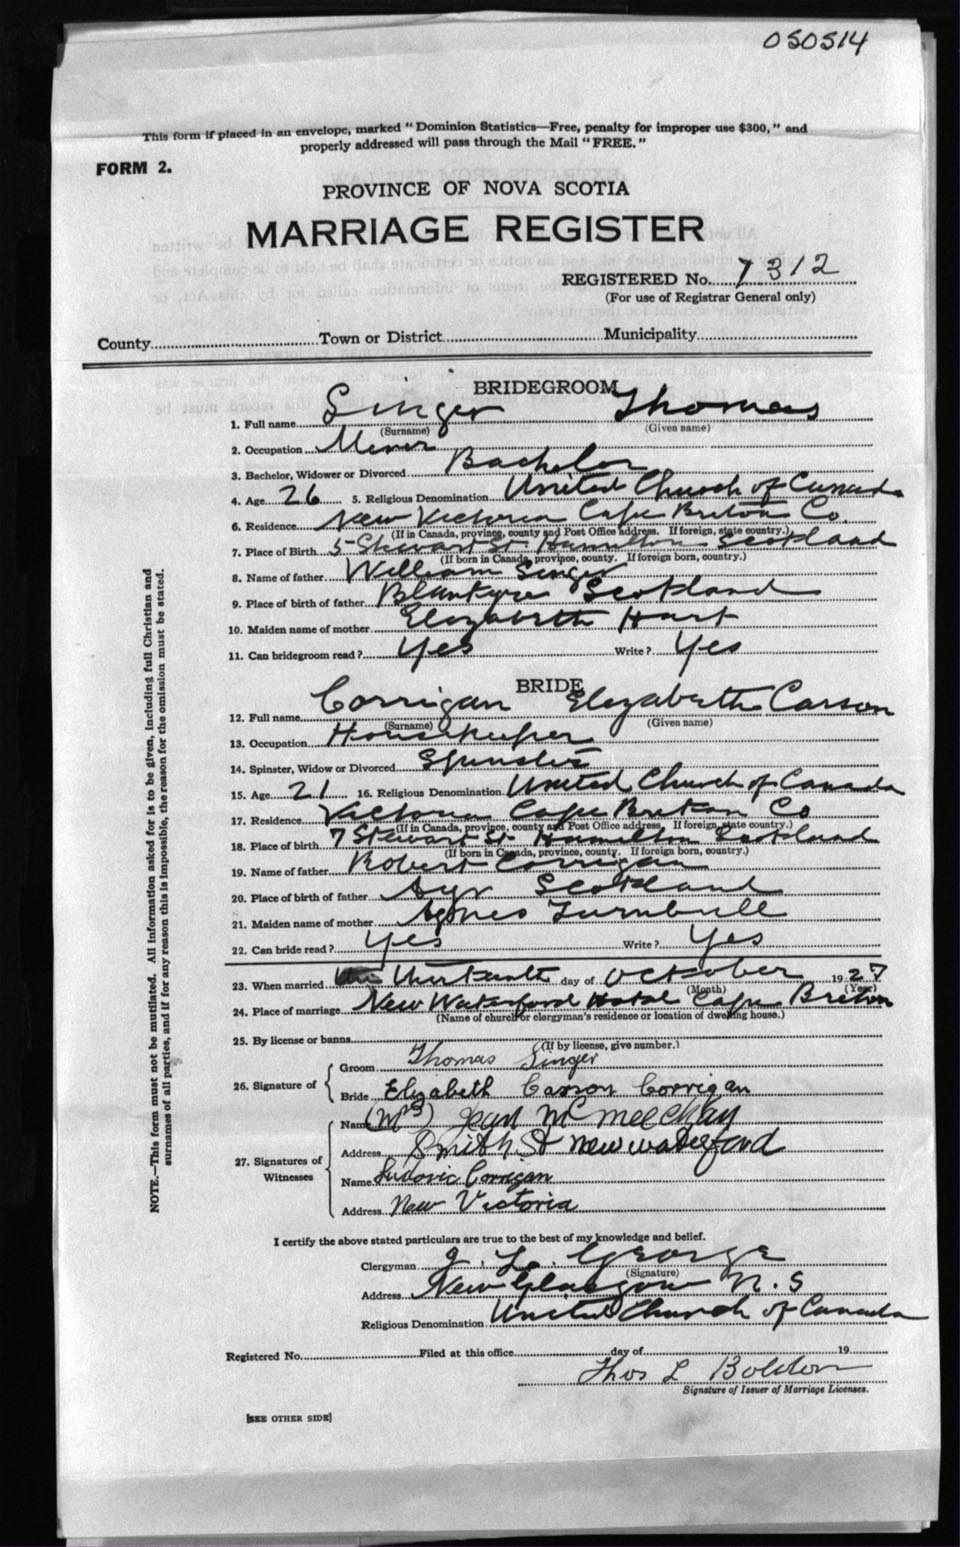 050514
This form if placed in an envelope, marked "Dominion Statistics—Free, penalty for improper use $300," and
properly addressed will pass through the Mail "FREE."
FORM 2.
PROVINCE OF NOVA SCOTIA
MARRIAGE REGISTER
REGISTERED No. 7312
(For use of Registrar General only)
County Town or District Municipality
BRIDEGROOM
1. Full name Singer Thomas
(Surname) (Given name)
2. Occupation Miner
3. Bachelor, Widower or Divorced Bachelor
4. Age 26 5. Religious Denomination United Church of Canada
6. Residence New Victoria Cape Breton Co.
(If in Canada, province, county and Post Office address. If foreign, state country.)
7. Place of Birth 5 Stewart St Hamilton Scotland
(If born in Canada, province, county. If foreign born, country.)
8. Name of father William Singer
9. Place of birth of father Blantyre Scotland
10. Maiden name of mother Elizabeth Hart
11. Can bridegroom read? Yes Write? Yes
BRIDE
12. Full name Corrigan Elizabeth Carson
(Surname) (Given name)
13. Occupation Housekeeper
14. Spinster, Widow or Divorced Spinster
15. Age 21 16. Religious Denomination United Church of Canada
17. Residence Victoria Cape Breton Co
(If in Canada, province, county and Post Office address. If foreign, state country.)
18. Place of birth 7 Stewart St Hamilton Scotland
(If born in Canada, province, county. If foreign born, country.)
19. Name of father Robert Corrigan
20. Place of birth of father Ayr Scotland
21. Maiden name of mother Agnes Turnbull
22. Can bride read? Yes Write? Yes
23. When married day of October 1927
(Month) (Year)
24. Place of marriage New Waterford Hotel Cape Breton
(Name of church or clergyman's residence or location of dwelling house.)
25. By license or banns
(If by license, give number.)
26. Signature of
Groom Thomas Singer
Bride Elizabeth Carson Corrigan
27. Signatures of Witnesses
Name (Mrs) Jean McMeechan
Address Smith St New Waterford
Name Ludovic Corrigan
Address New Victoria
I certify the above stated particulars are true to the best of my knowledge and belief.
Clergyman J. L. George
(Signature)
Address New Glasgow N.S
Religious Denomination United Church of Canada
Registered No. Filed at this office day of 19
Thos L Boldon
Signature of Issuer of Marriage Licenses.
[SEE OTHER SIDE]
NOTE.—This form must not be mutilated. All information asked for is to be given, including full Christian and
surnames of all parties, and if for any reason this is impossible, the reason for the omission must be stated.